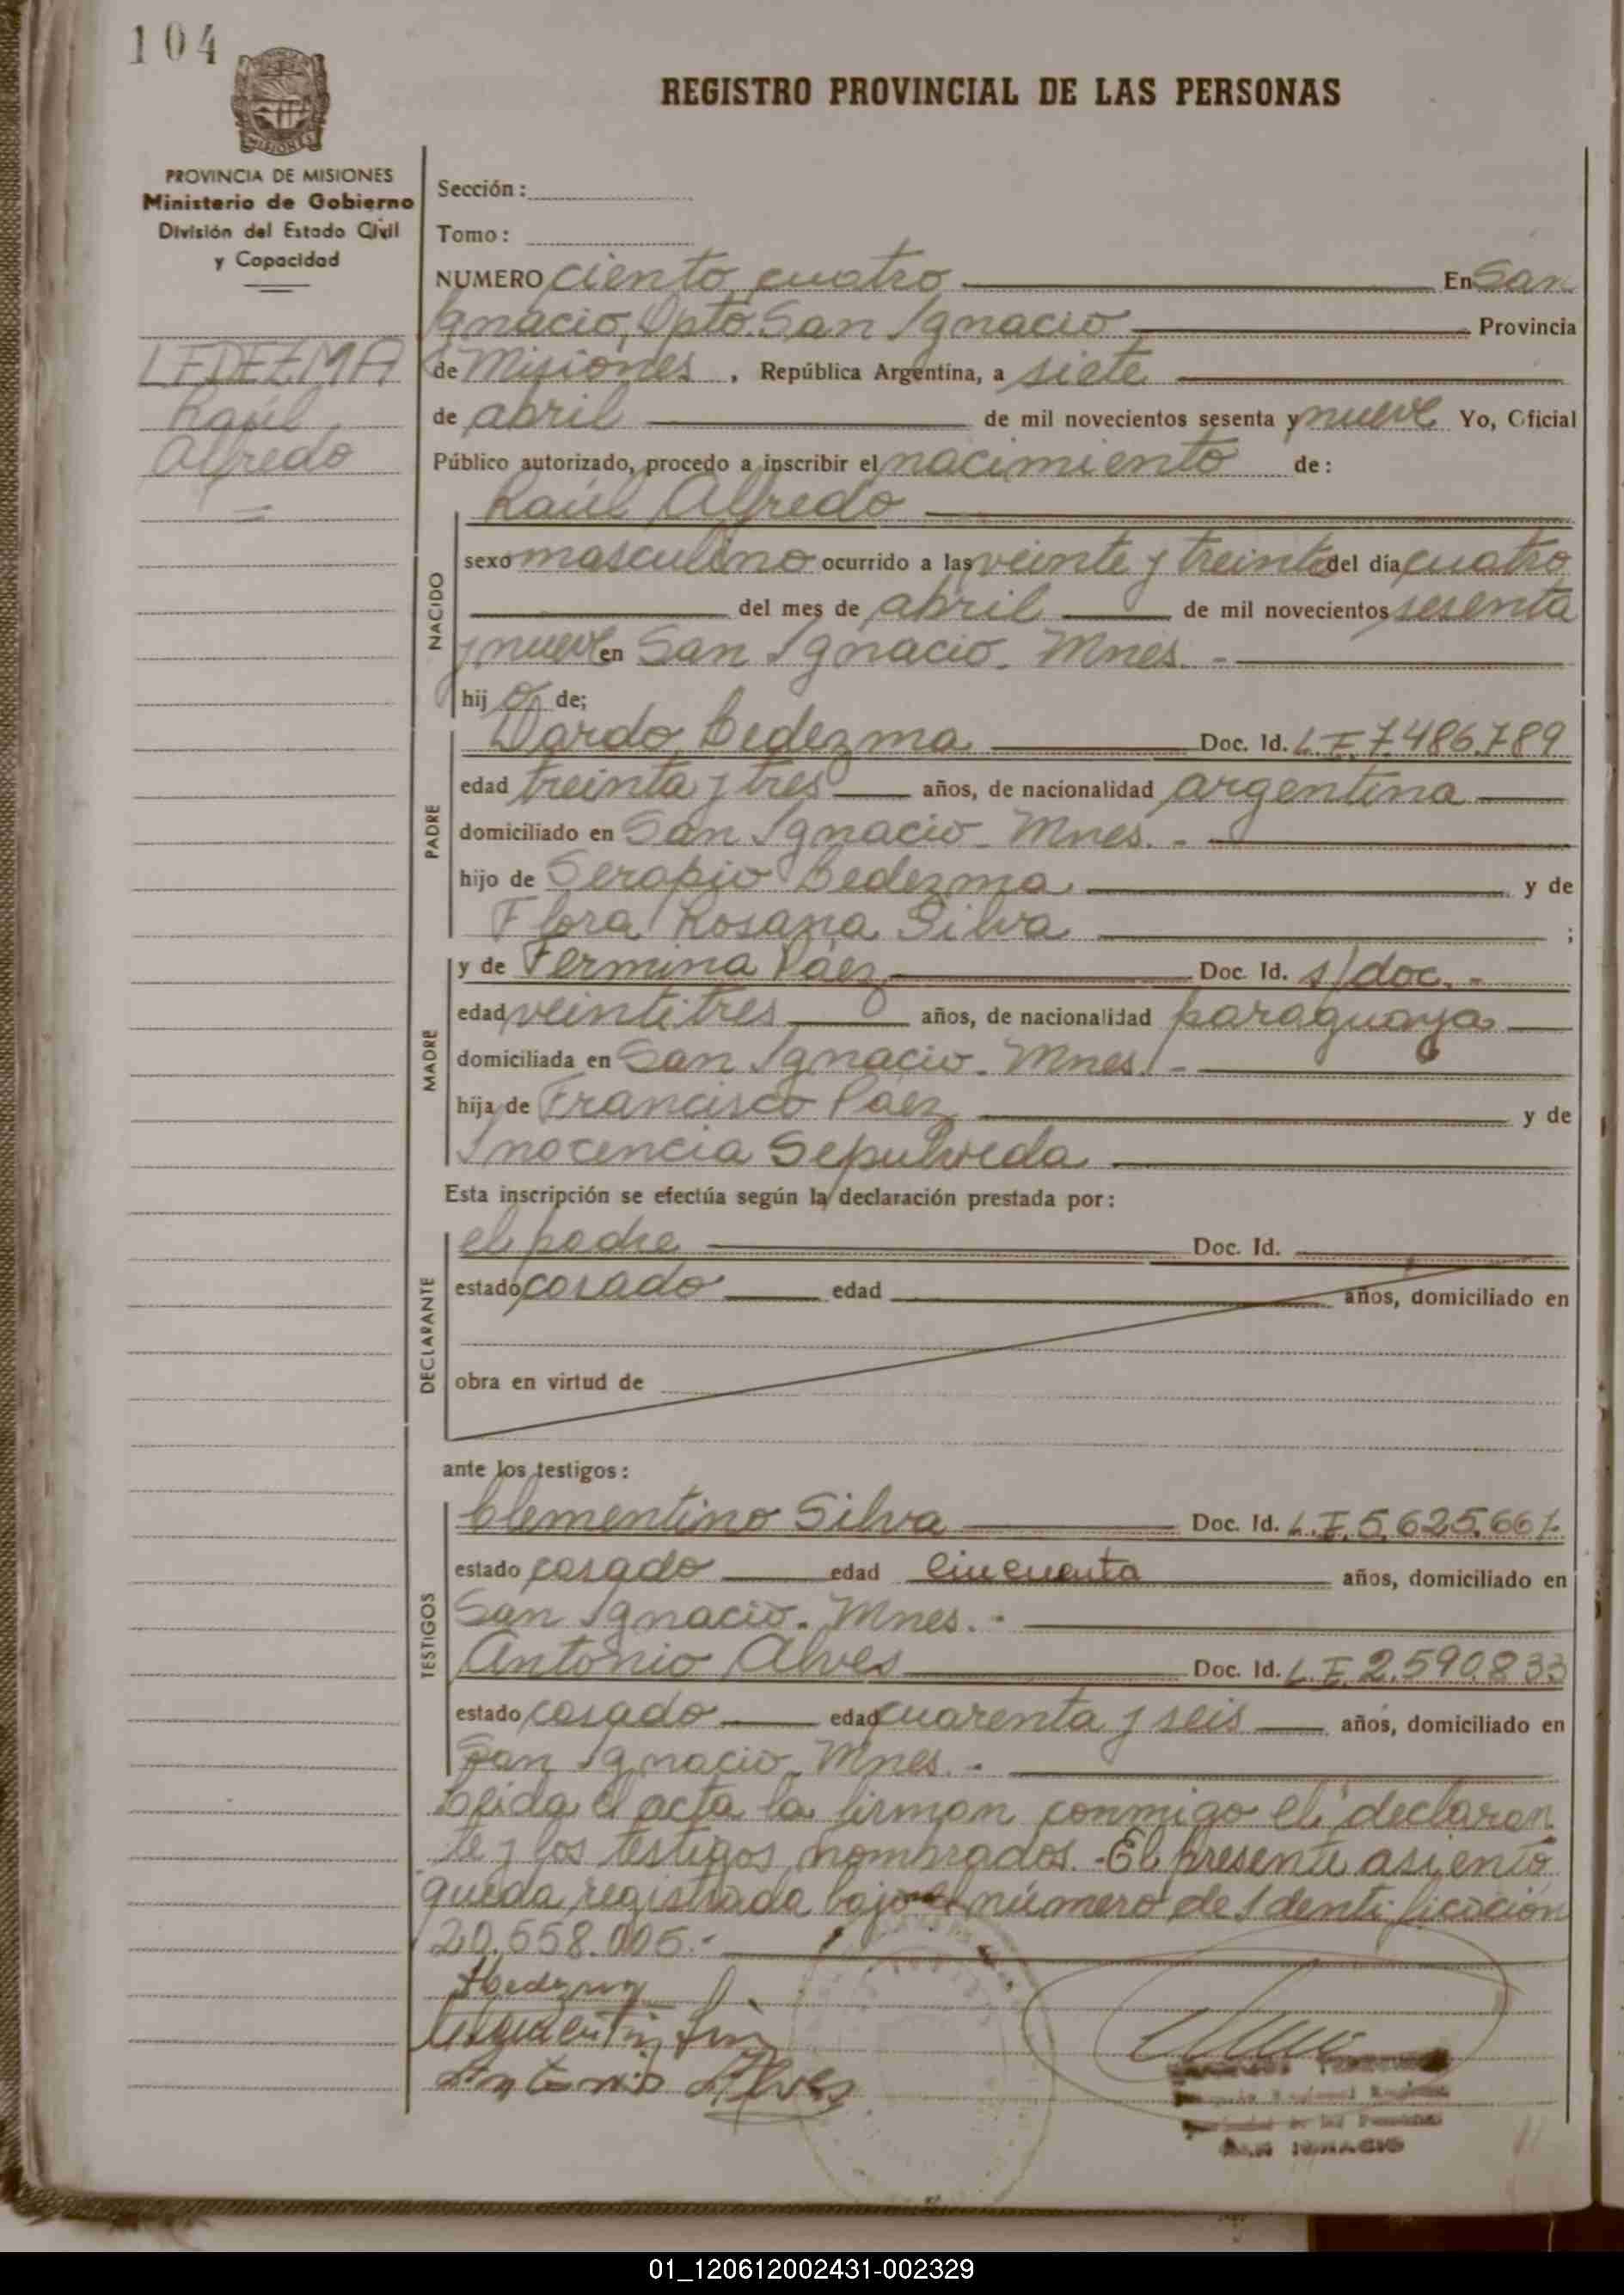 104
REGISTRO PROVINCIAL DE LAS PERSONAS
MISIONES
PROVINCIA DE MISIONES
Ministerio de Gobierno
División del Estado Civil
y Capacidad
LEDEZMA
Raúl
Alfredo
Sección:
Tomo:
NUMERO ciento cuatro En San
Ignacio, Dpto. San Ignacio Provincia
de Misiones, República Argentina, a siete
de abril de mil novecientos sesenta y nueve Yo, Oficial
Público autorizado, procedo a inscribir el nacimiento de:
NACIDO
Raúl Alfredo
sexo masculino ocurrido a las veinte y treinta del día cuatro
del mes de abril de mil novecientos sesenta
y nueve en San Ignacio. Mnes. -
hijo de;
PADRE
Dardo Ledezma Doc. Id. L.E. 7.486.789
edad treinta y tres años, de nacionalidad argentina
domiciliado en San Ignacio - Mnes. -
hijo de Serapio Ledezma y de
Flora Rosana Silva ;
MADRE
y de Fermina Páez Doc. Id. s/doc. -
edad veintitres años, de nacionalidad paraguaya
domiciliada en San Ignacio. Mnes. -
hija de Francisco Páez y de
Inocencia Sepulveda
Esta inscripción se efectúa según la declaración prestada por:
DECLARANTE
el padre Doc. Id.
estado casado edad años, domiciliado en
obra en virtud de
ante los testigos:
TESTIGOS
Clementino Silva Doc. Id. L.E. 5.625.661.
estado casado edad cincuenta años, domiciliado en
San Ignacio. Mnes. -
Antonio Alves Doc. Id. L.E. 2.590.833
estado casado edad cuarenta y seis años, domiciliado en
San Ignacio. Mnes. -
Leida el acta la firman conmigo el declaran
te y los testigos nombrados. - El presente asiento
queda registrada bajo el número de Identificación
20.558.005.-
Antonio Alves
SAN IGNACIO
01_120612002431-002329